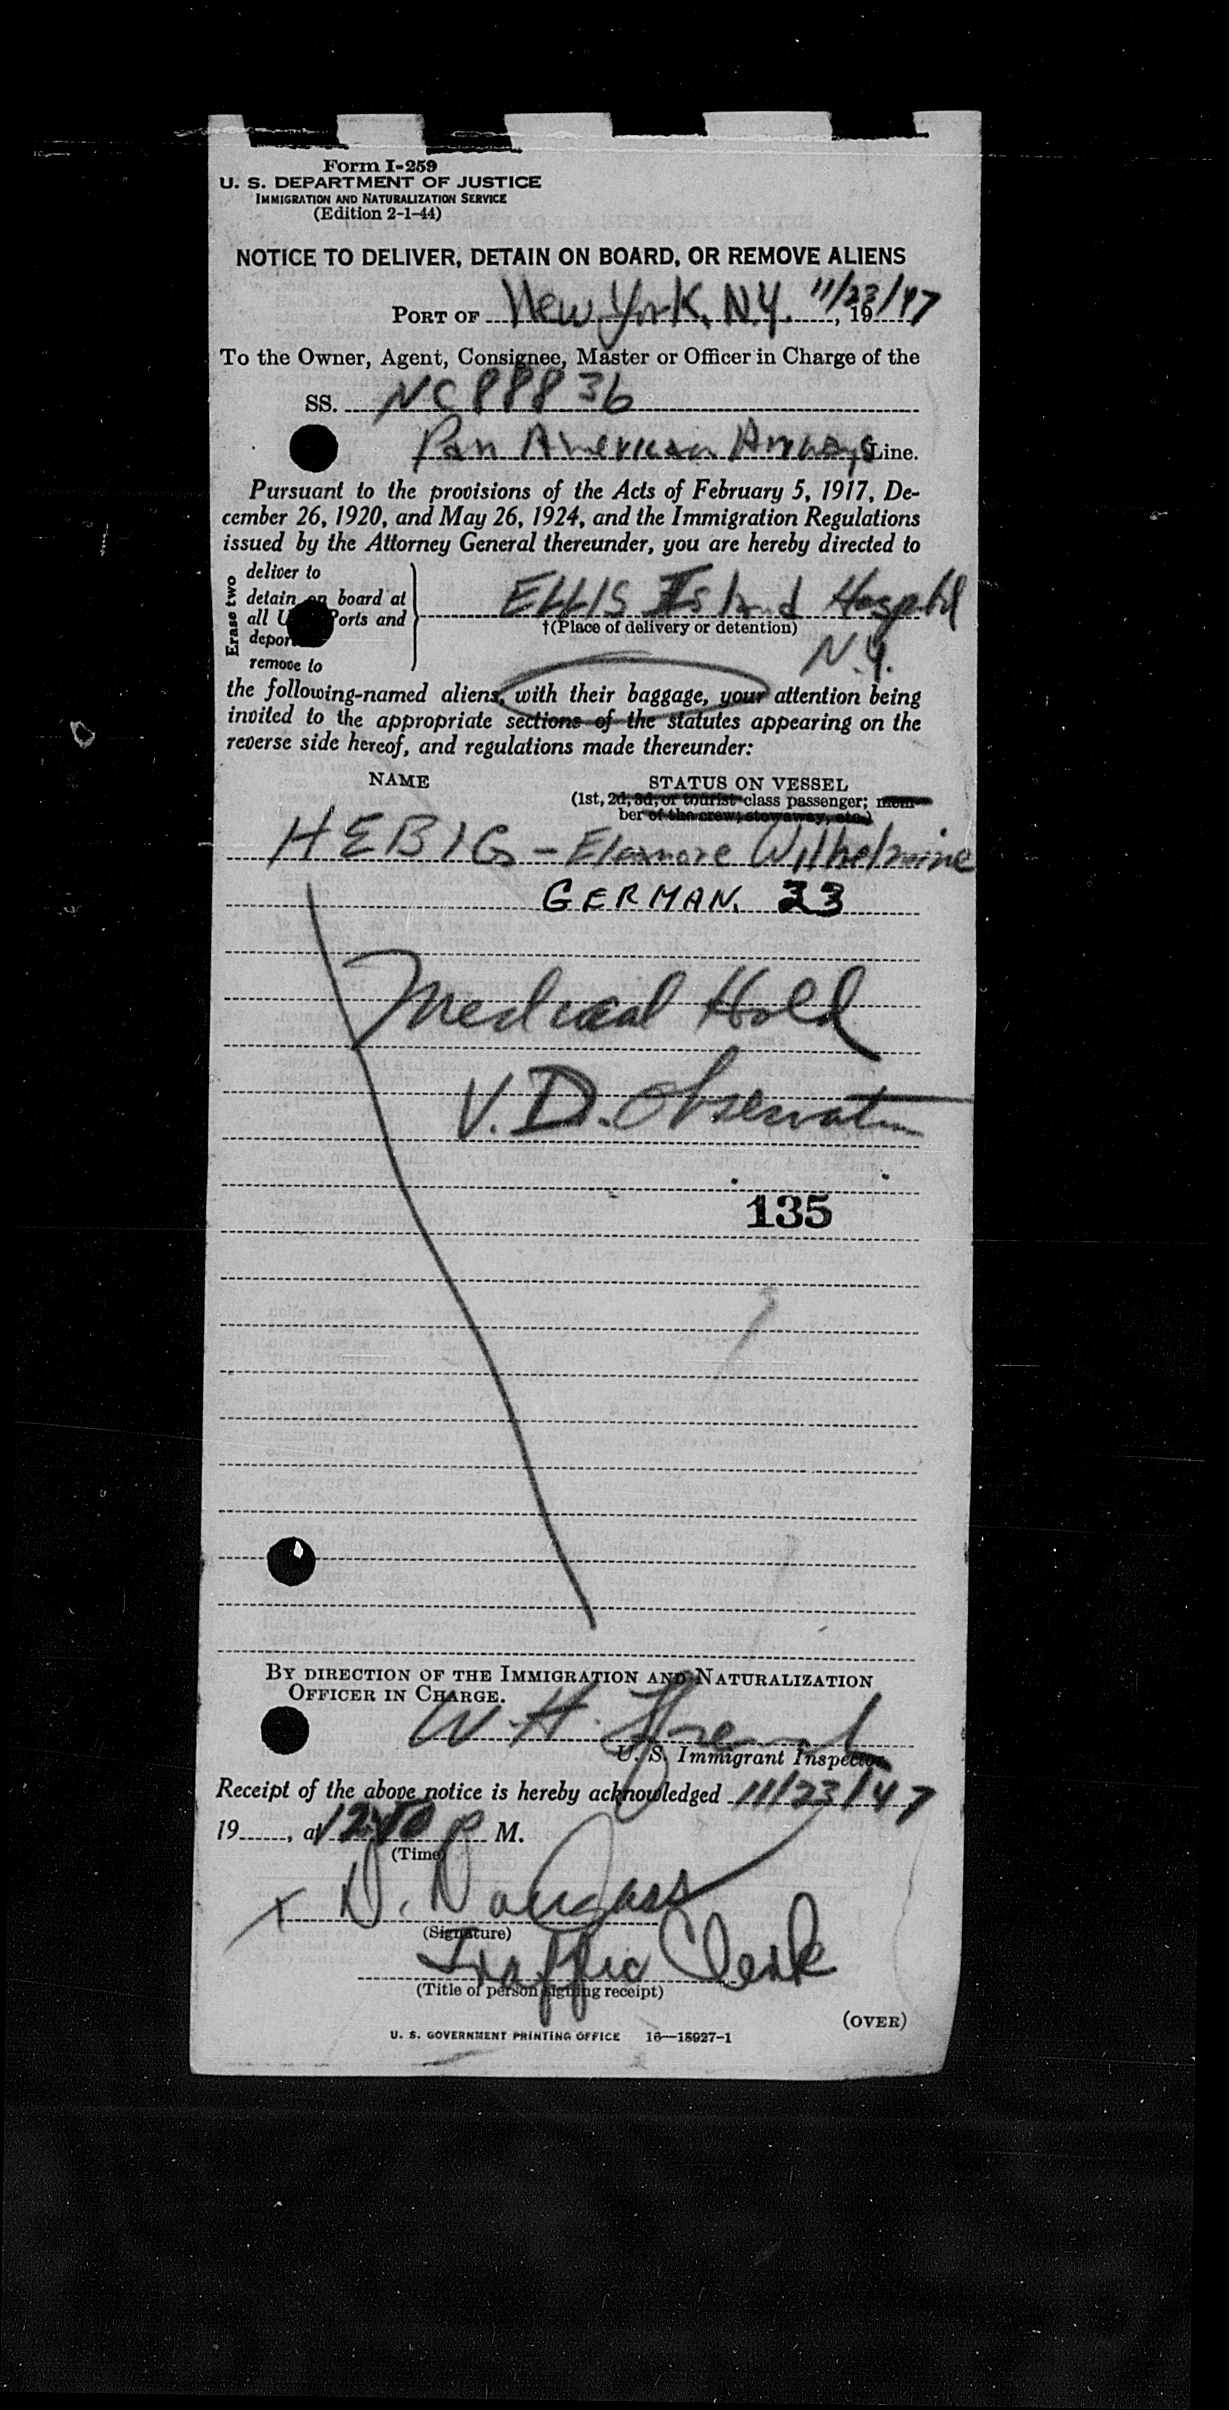 Form I-259
U. S. DEPARTMENT OF JUSTICE
IMMIGRATION AND NATURALIZATION SERVICE
(Edition 2-1-44)
NOTICE TO DELIVER, DETAIN ON BOARD, OR REMOVE ALIENS
PORT OF New York, N.Y. 11/23/47, 19
To the Owner, Agent, Consignee, Master or Officer in Charge of the
SS. NC 88836
Pan American Airways Line.
Pursuant to the provisions of the Acts of February 5, 1917, De-
cember 26, 1920, and May 26, 1924, and the Immigration Regulations
issued by the Attorney General thereunder, you are hereby directed to
Erase two
deliver to
detain on board at
all U Ports and
depor
remove to
ELLIS Island Hospital
†(Place of delivery or detention)
N.Y.
the following-named aliens, with their baggage, your attention being
invited to the appropriate sections of the statutes appearing on the
reverse side hereof, and regulations made thereunder:
NAME STATUS ON VESSEL
(1st, 2d, 3d, or tourist class passenger; mem-
ber of the crew; stowaway, etc.)
HEBIG - Eleanore Wilhelmine
GERMAN. 33
Medical Hold
V.D. Observation
135
BY DIRECTION OF THE IMMIGRATION AND NATURALIZATION
OFFICER IN CHARGE.
W. H.
U. S. Immigrant Inspector
Receipt of the above notice is hereby acknowledged 11/23/47
19, at P M.
(Time)
x D. Douglass
(Signature)
Traffic Clerk
(Title of person signing receipt)
(OVER)
U. S. GOVERNMENT PRINTING OFFICE 16—18927-1